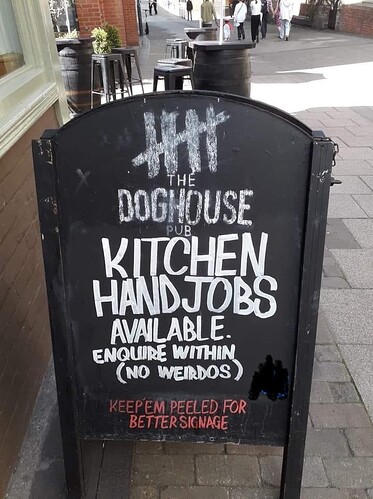 THE
DOGHOUSE
PUB
KITCHEN
HANDJOBS
AVAILABLE.
ENQUIRE WITHIN
(NO WEIRDOS)
KEEP'EM PEELED FOR
BETTER SIGNAGE